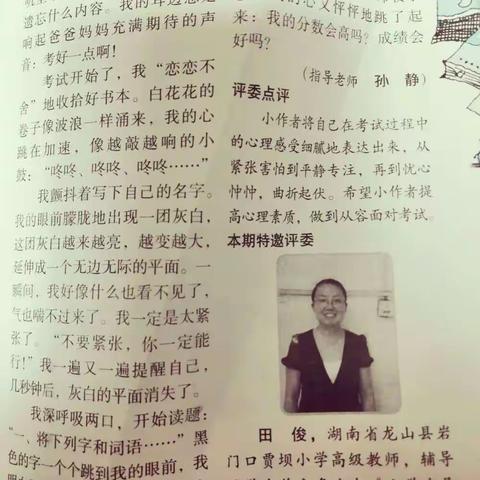 遗忘什么内容。我的耳边总是
响起爸爸妈妈充满期待的声
音：考好一点啊！
考试开始了，我“恋恋不
舍”地收拾好书本。白花花的
卷子像波浪一样涌来，我的心
跳在加速，像越敲越响的小
鼓：“咚咚、咚咚、咚咚……”
我颤抖着写下自己的名字。
我的眼前朦胧地出现一团灰白，
这团灰白越来越亮，越变越大，
延伸成一个无边无际的平面。一
瞬间，我好像什么也看不见了，
气也喘不过来了。我一定是太紧
张了。“不要紧张，你一定能
行！”我一遍又一遍提醒自己，
几秒钟后，灰白的平面消失了。
我深呼吸两口，开始读题：
“一、将下列字和词语……”黑
色的字一个个跳到我的眼前，我
的心又怦怦地跳了起
来：我的分数会高吗？成绩会
好吗？
（指导老师 孙 静）
评委点评
小作者将自己在考试过程中
的心理感受细腻地表达出来，从
紧张害怕到平静专注，再到忧心
忡忡，曲折起伏。希望小作者提
高心理素质，做到从容面对考试。
本期特邀评委
田 俊，湖南省龙山县岩
门口贾坝小学高级教师，辅导